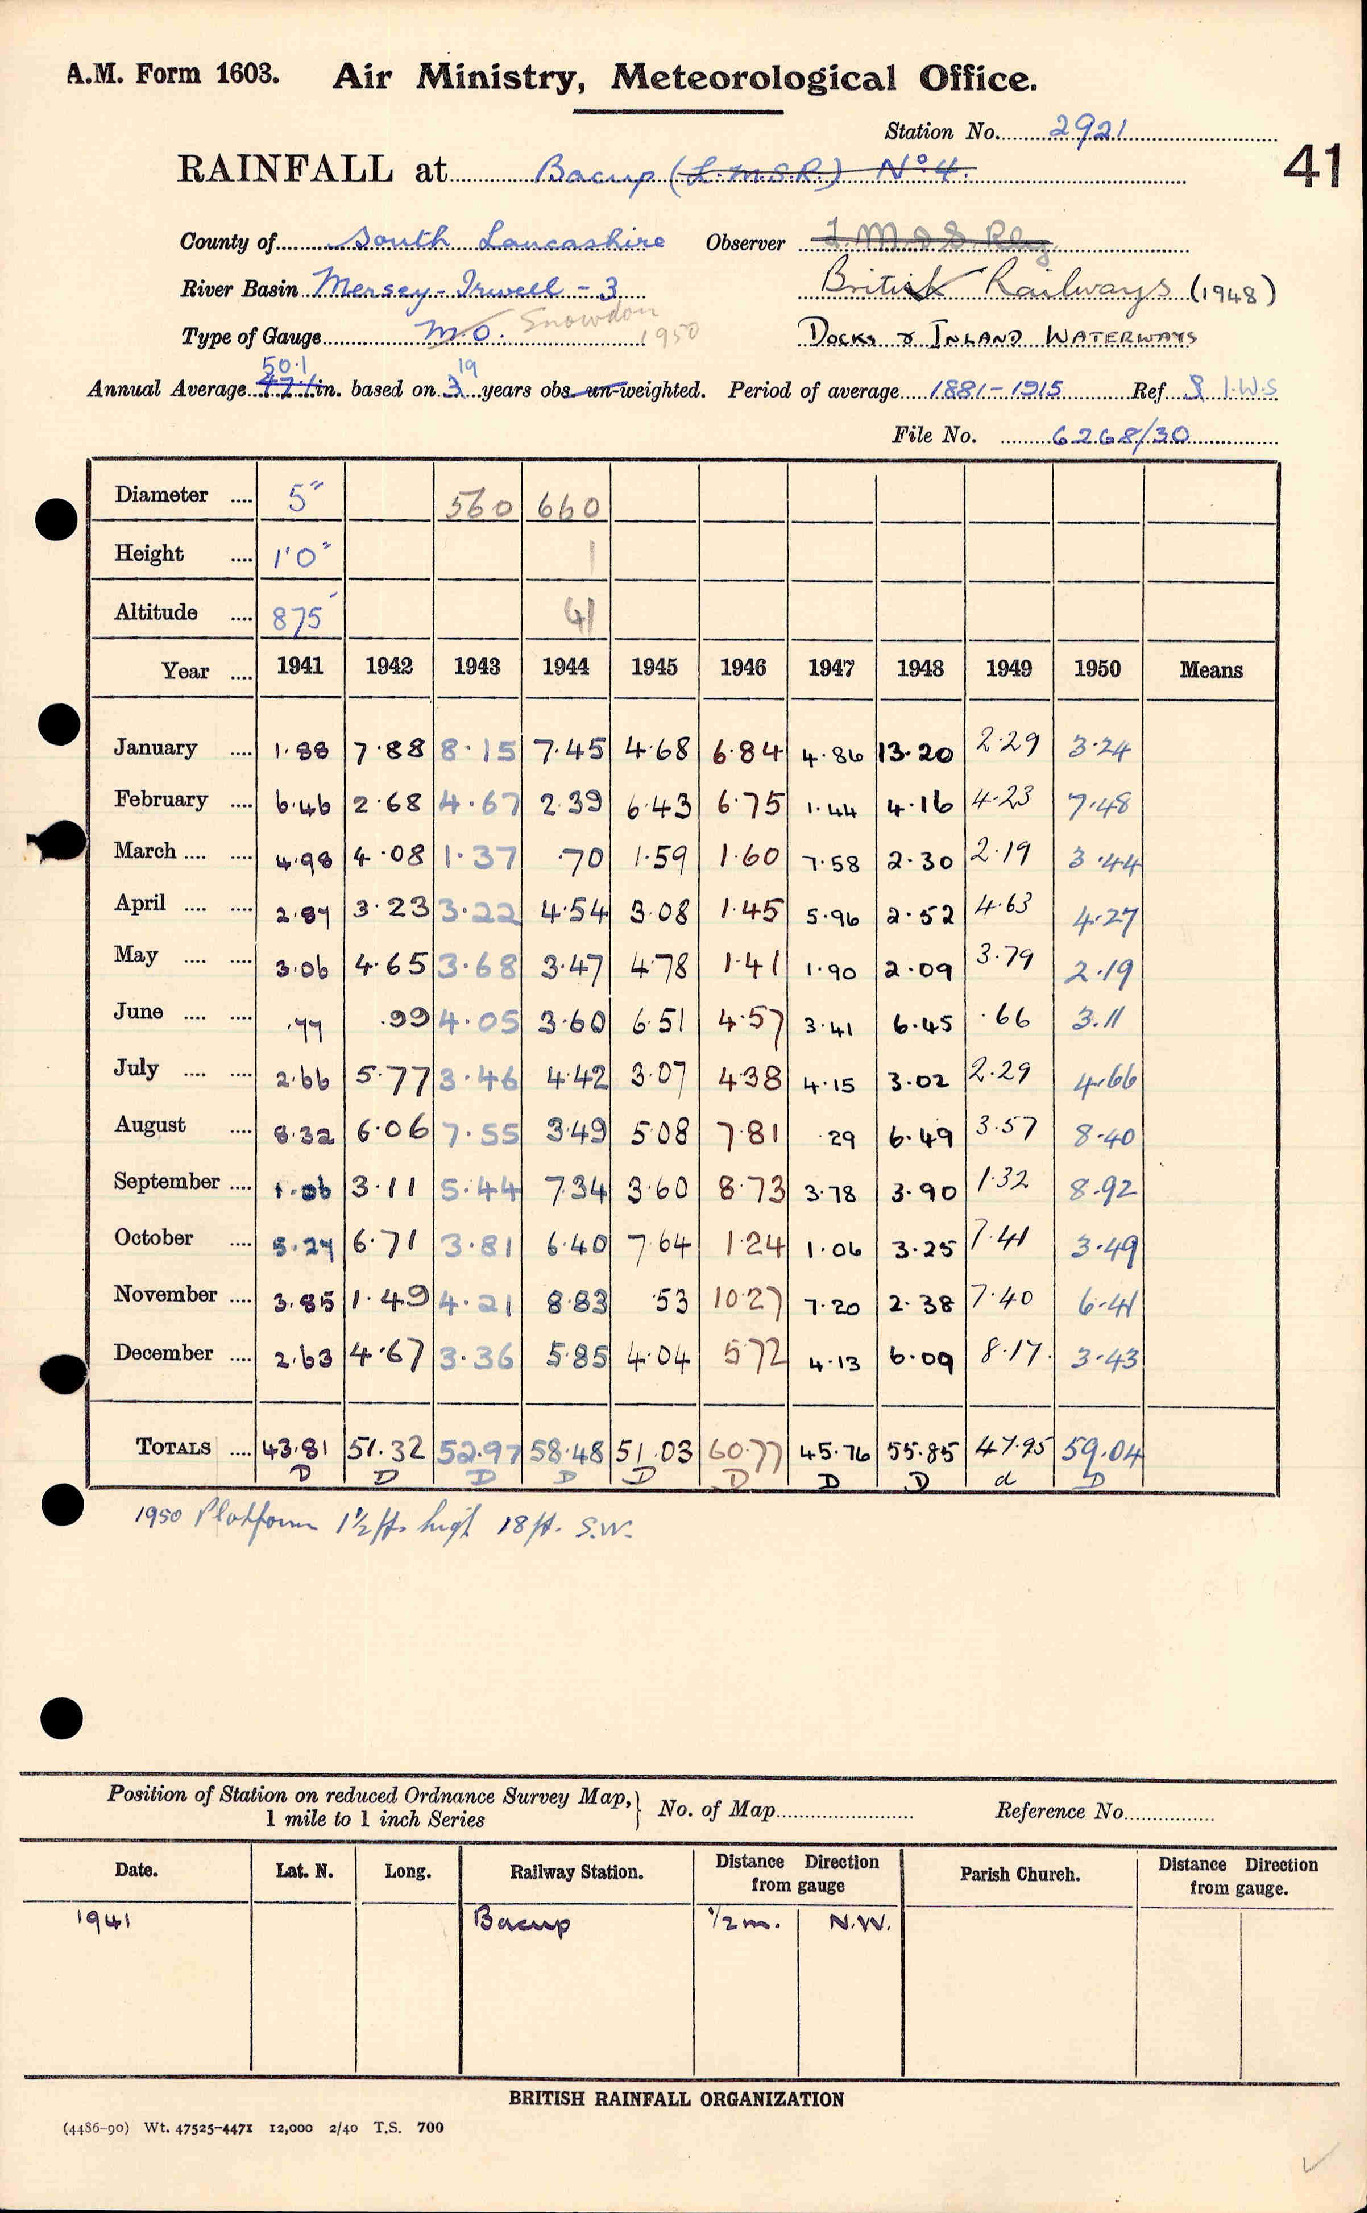 A.M. Form 1603. Air Ministry, Meteorological Office.
Station No. 2921
41
RAINFALL at Bacup (L.M.S.R.) No. 4.
County of South Lancashire Observer L M & S Rly
River Basin Mersey - Irwell - 3 British Railways (1948)
Type of Gauge M.O. Snowdon 1950 DOCKS & INLAND WATERWAYS
50.1 19
Annual Average 47.1 in. based on 3 years obs. un-weighted. Period of average 1881-1915 Ref. I.W.S
File No. 6268/30
Diameter .... 5" 560 660
Height .... 1'0" 1
Altitude .... 875' 41
Year .... 1941 1942 1943 1944 1945 1946 1947 1948 1949 1950 Means
January .... 1.88 7.88 8.15 7.45 4.68 6.84 4.86 13.20 2.29 3.24
February .... 6.46 2.68 4.67 2.39 6.43 6.75 1.44 4.16 4.23 7.48
March .... .... 4.98 4.08 1.37 .70 1.59 1.60 7.58 2.30 2.19 3.44
April .... .... 2.87 3.23 3.22 4.54 3.08 1.45 5.96 2.52 4.63 4.27
May .... .... 3.06 4.65 3.68 3.47 4.78 1.41 1.90 2.09 3.79 2.19
June .... .... .77 .99 4.05 3.60 6.51 4.57 3.41 6.45 .66 3.11
July .... .... 2.66 5.77 3.46 4.42 3.07 4.38 4.15 3.02 2.29 4.66
August .... 8.32 6.06 7.55 3.49 5.08 7.81 .29 6.49 3.57 8.40
September .... 1.06 3.11 5.44 7.34 3.60 8.73 3.78 3.90 1.32 8.92
October .... 5.27 6.71 3.81 6.40 7.64 1.24 1.06 3.25 7.41 3.49
November .... 3.85 1.49 4.21 8.83 .53 10.27 7.20 2.38 7.40 6.41
December .... 2.63 4.67 3.36 5.85 4.04 5.72 4.13 6.09 8.17. 3.43
TOTALS .... 43.81 51.32 52.97 58.48 51.03 60.77 45.76 55.85 47.95 59.04
D D D D D D D D d D
1950 Platform 1½ ft. high 18 ft. S.W.
Position of Station on reduced Ordnance Survey Map, } No. of Map Reference No.
1 mile to 1 inch Series
Date. Lat. N. Long. Railway Station. Distance Direction from gauge Parish Church. Distance Direction from gauge.
1941 Bacup ½ m. N.W.
BRITISH RAINFALL ORGANIZATION
(4486-90) Wt. 47525-4471 12,000 2/40 T.S. 700